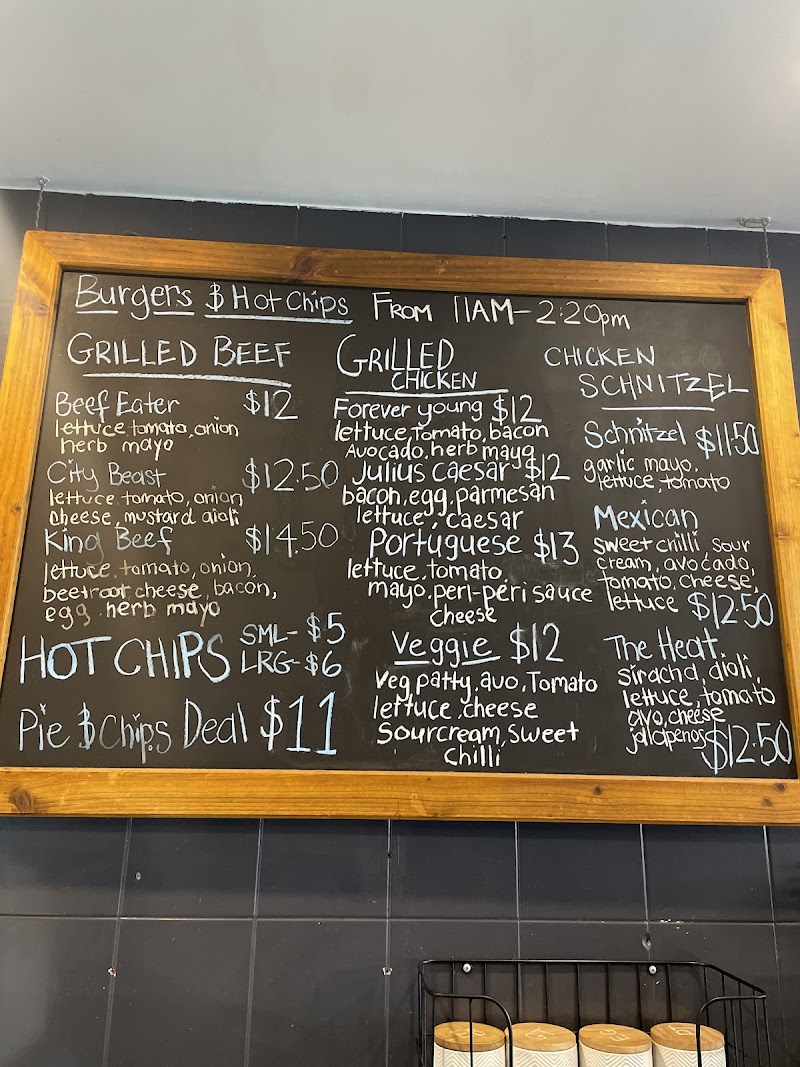 Burgers & Hot Chips From 11AM - 2:20pm
GRILLED BEEF
Beef Eater $12
lettuce, tomato, onion
herb mayo
City Beast $12.50
lettuce, tomato, onion
cheese, mustard aioli
King Beef $14.50
lettuce, tomato, onion,
beetroot, cheese, bacon,
egg, herb mayo
HOT CHIPS SML- $5
LRG- $6
Pie & Chips Deal $11
GRILLED
CHICKEN
Forever young $12
lettuce, tomato, bacon
Avocado, herb mayo
Julius caesar $12
bacon, egg, parmesan
lettuce, caesar
Portuguese $13
lettuce, tomato,
mayo, peri-peri sauce
cheese
Veggie $12
Veg patty, avo, Tomato
lettuce, cheese
Sourcream, sweet
chilli
CHICKEN
SCHNITZEL
Schnitzel $11.50
garlic mayo,
lettuce, tomato
Mexican
sweet chilli sour
cream, avocado,
tomato, cheese,
lettuce $12.50
The Heat
siracha, aioli,
lettuce, tomato
avo, cheese
jalapenos $12.50